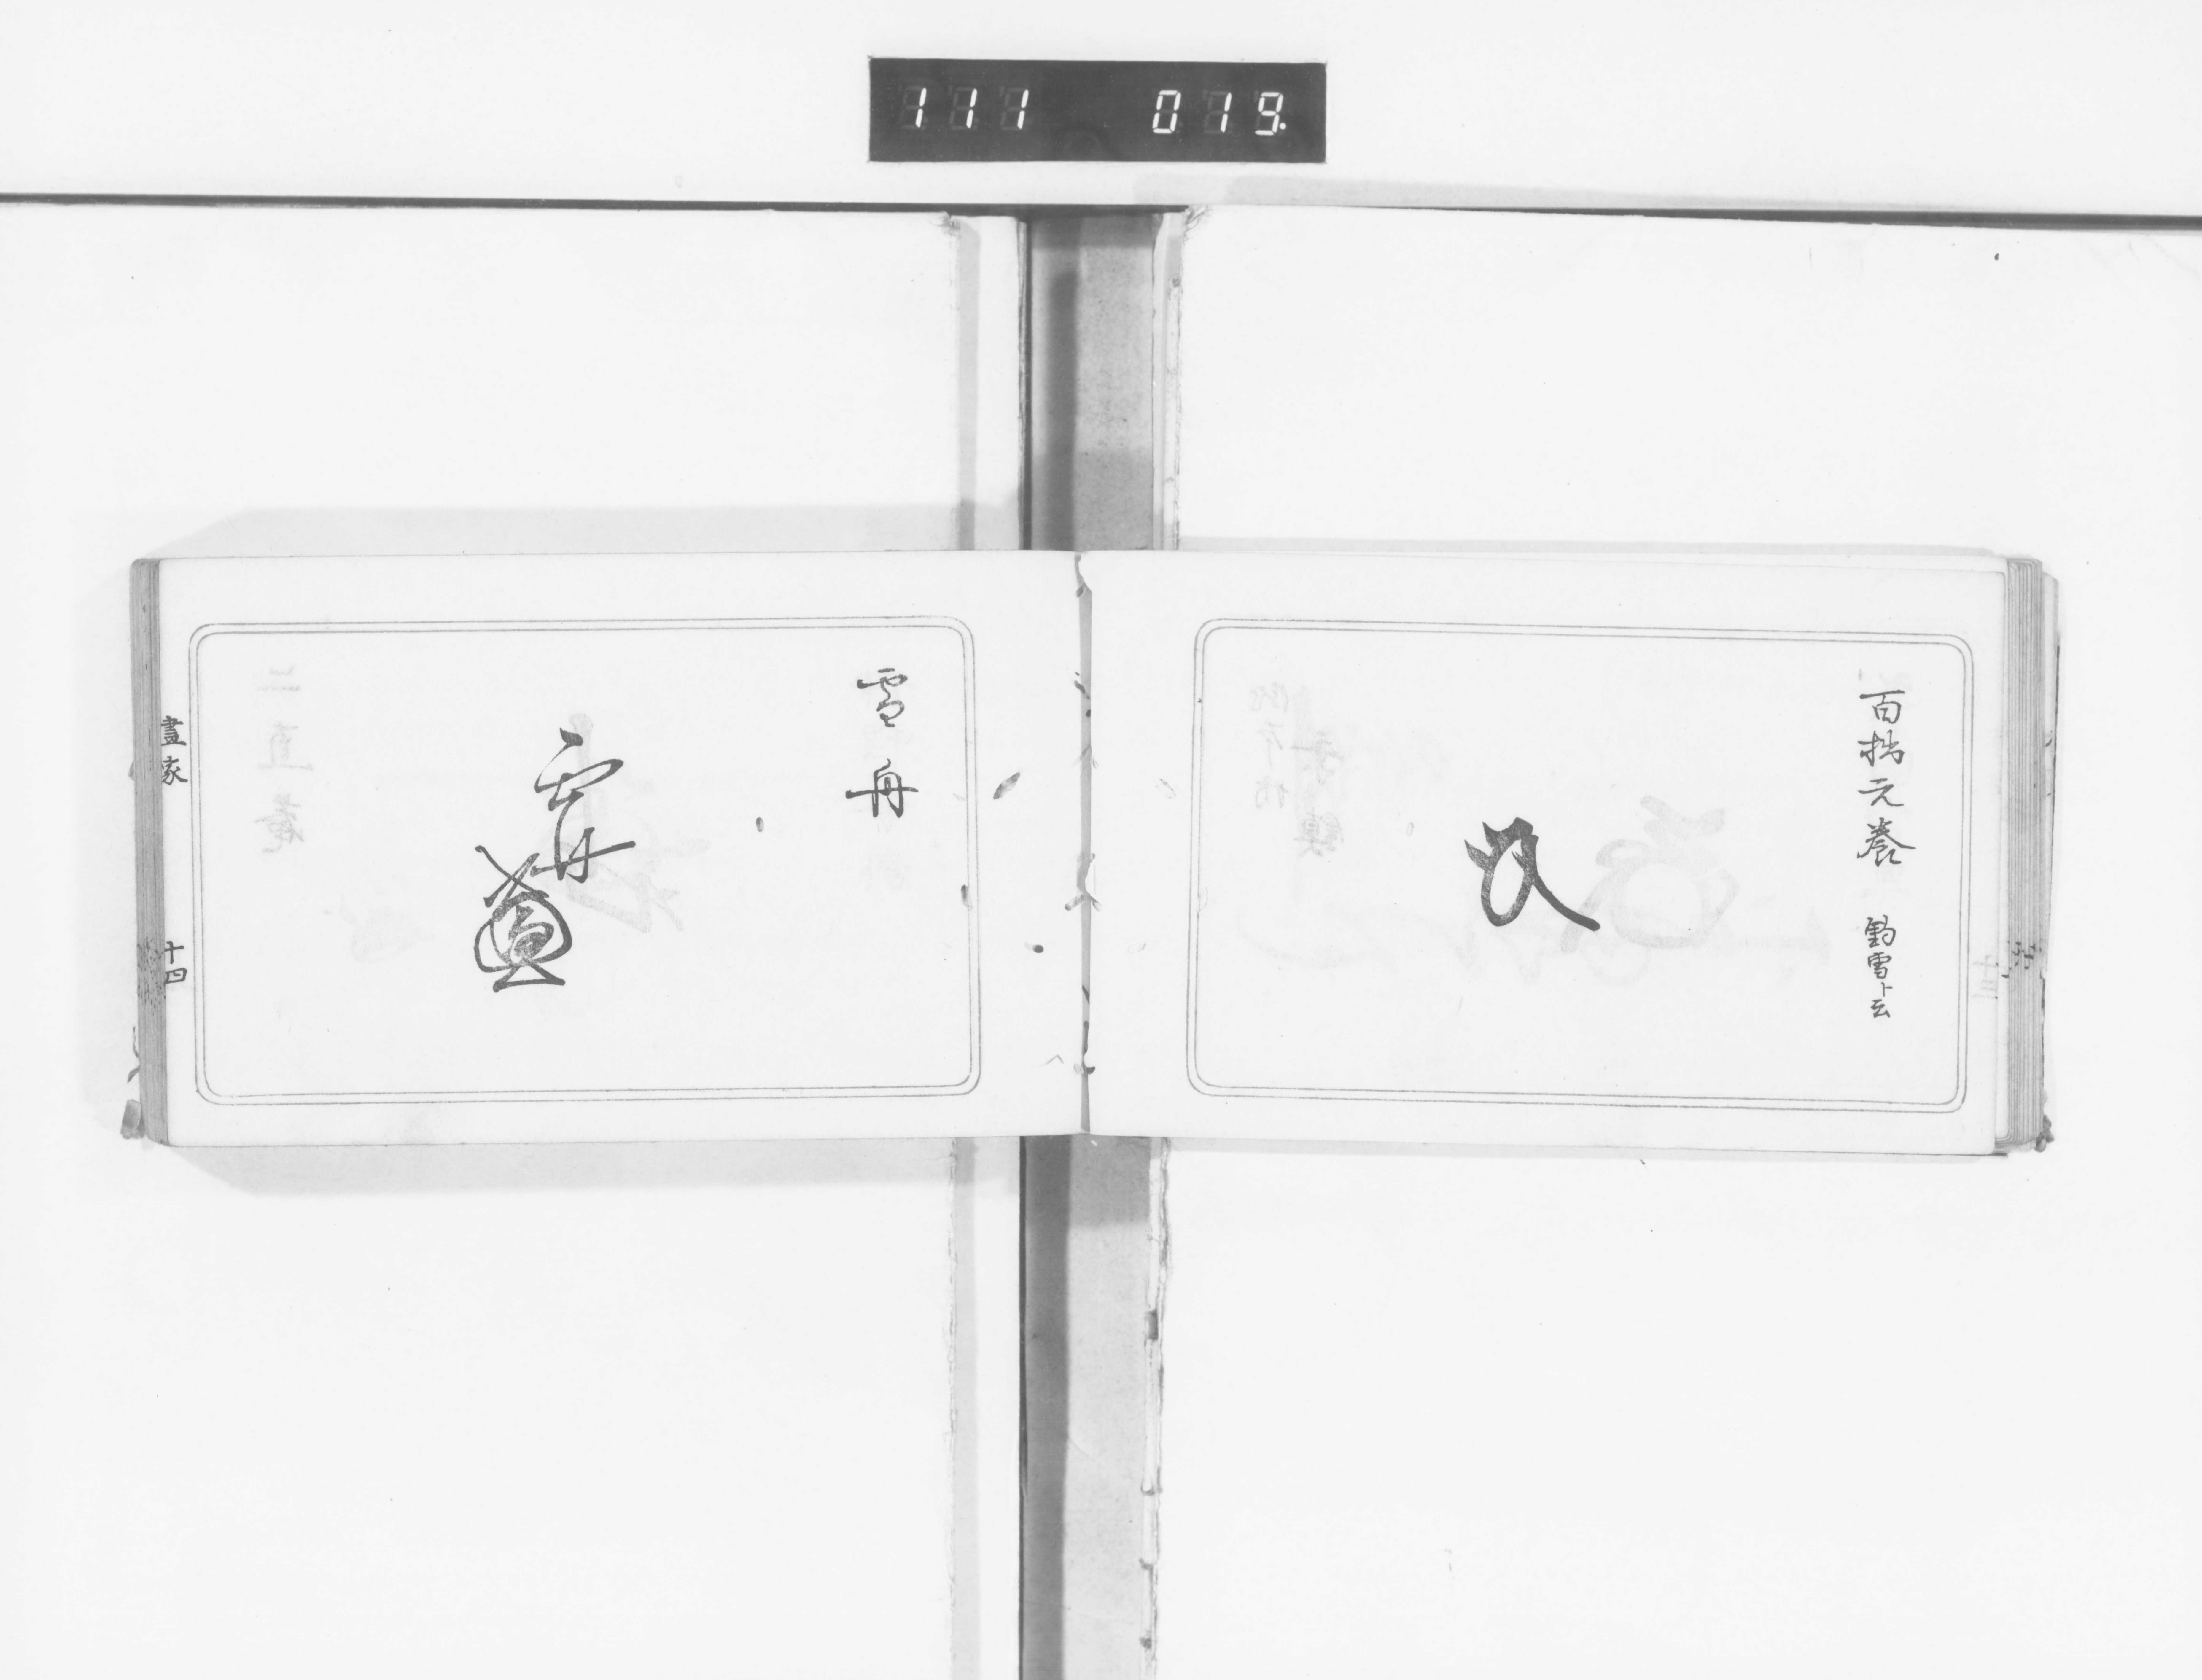 111 019.
百拙元養 釣雪ト云
雪舟
雪舟
畫家
十四